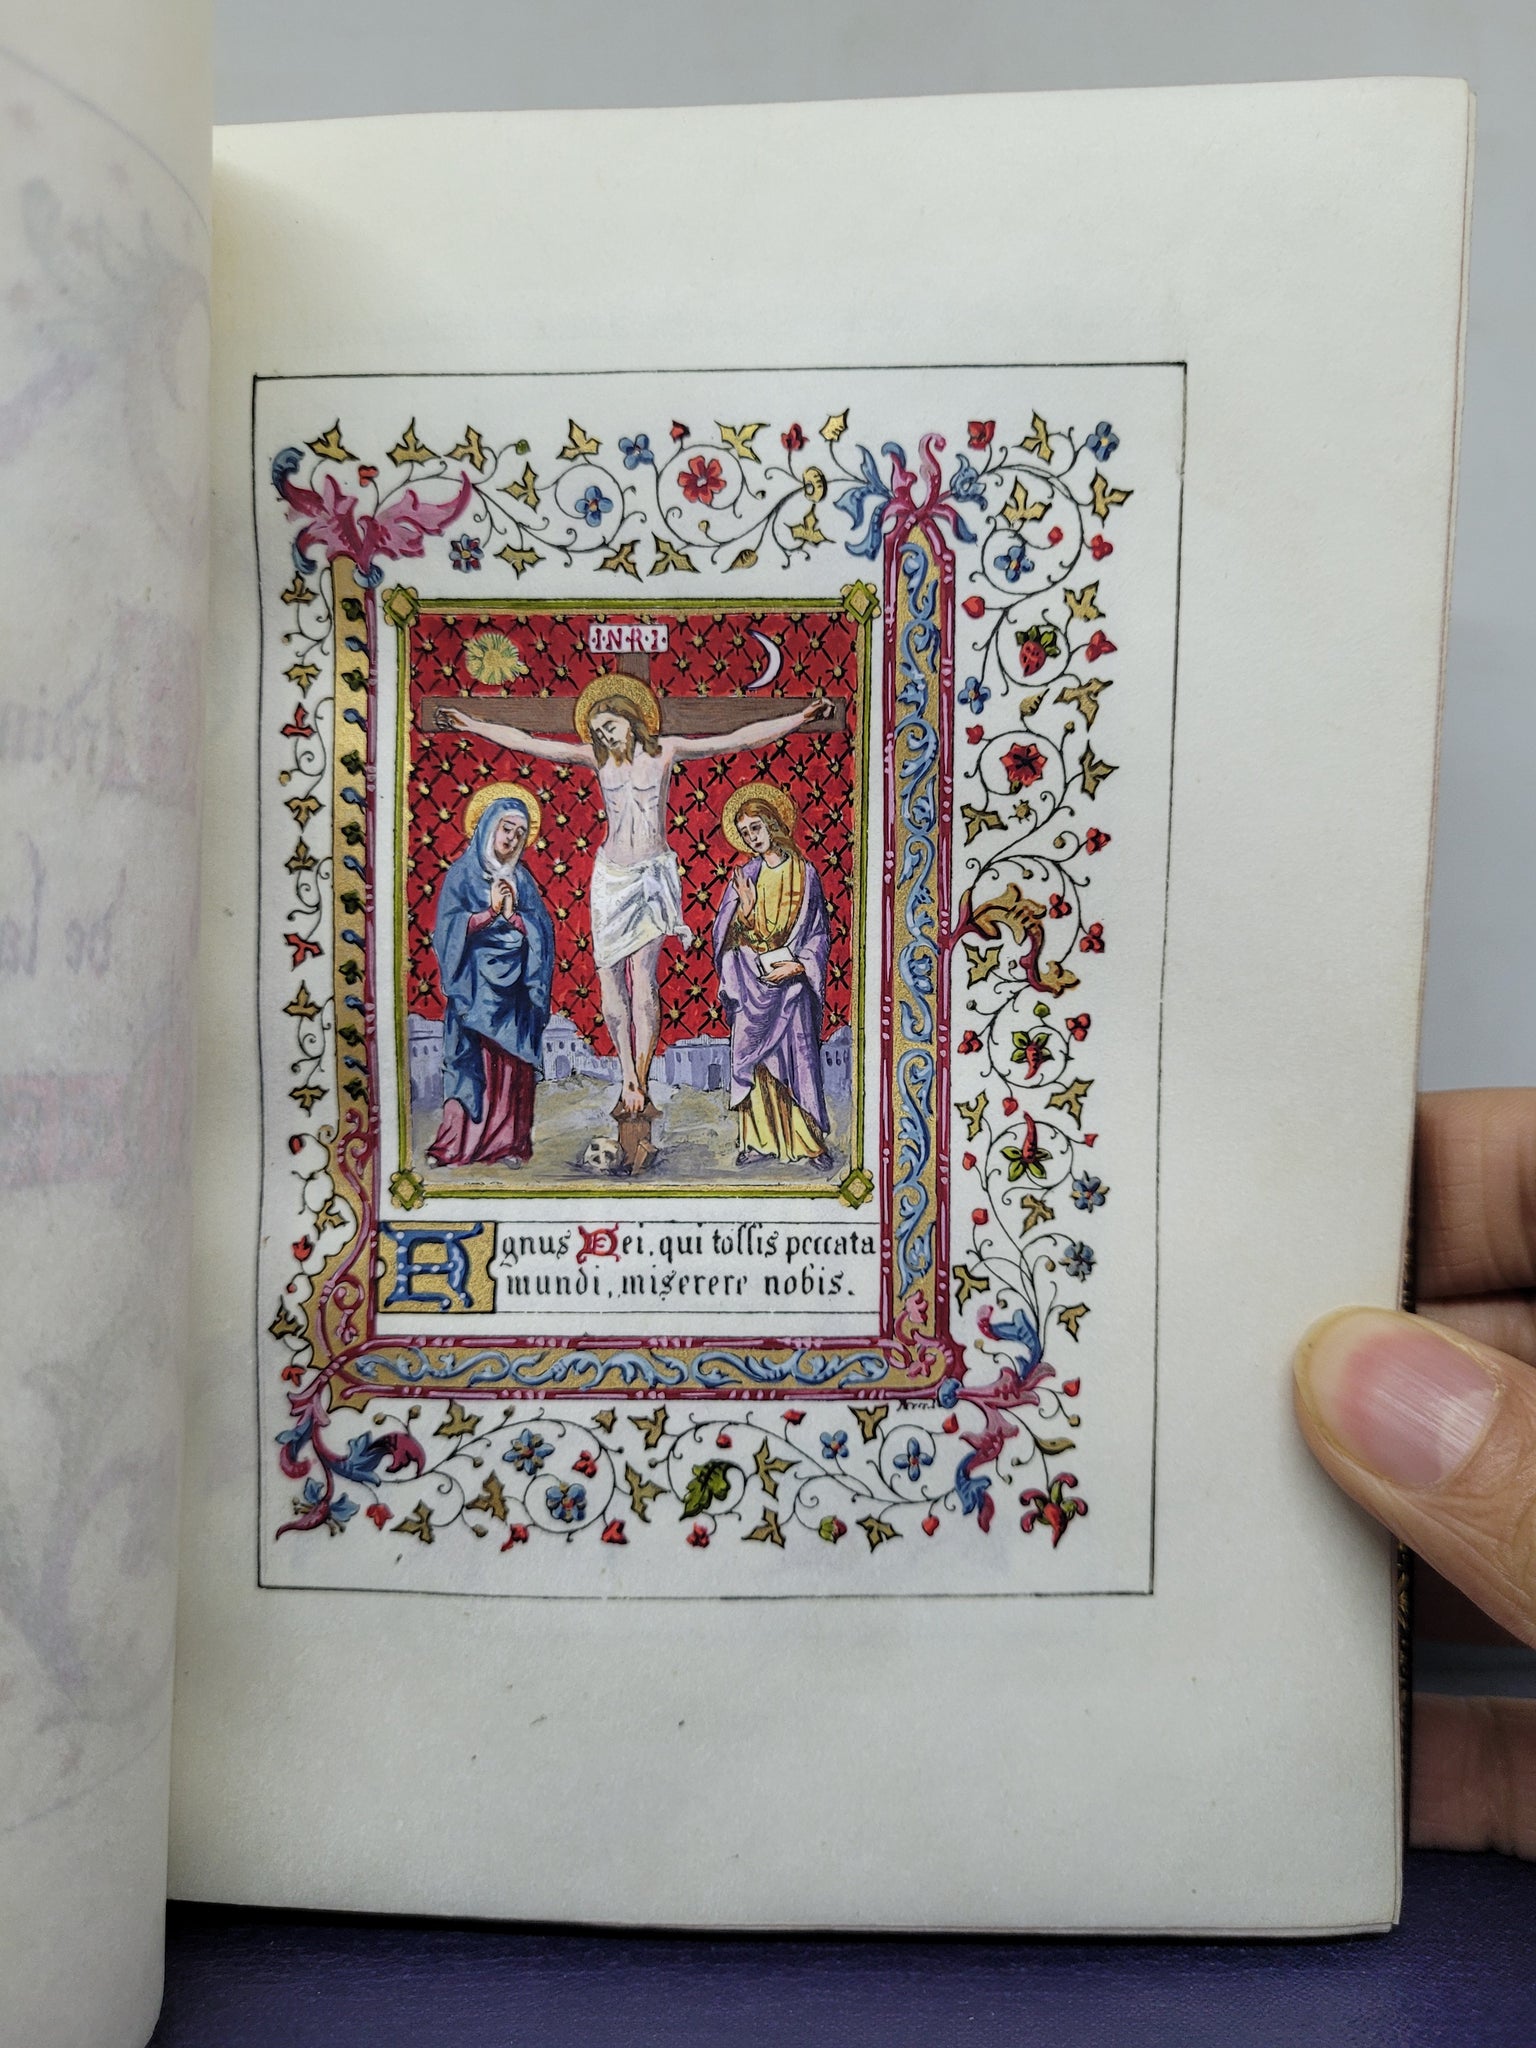 I·N·R·I·
Agnus Dei, qui tollis peccata
mundi, miserere nobis.